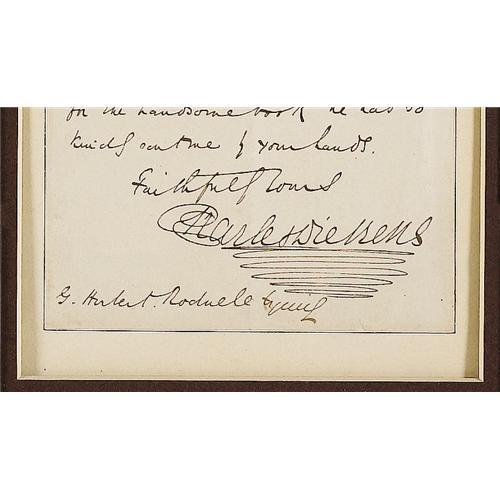 for the handsome book he has so
kindly sent me by your hands.
Faithfully Yours
Charles Dickens
G. Herbert Rodwell